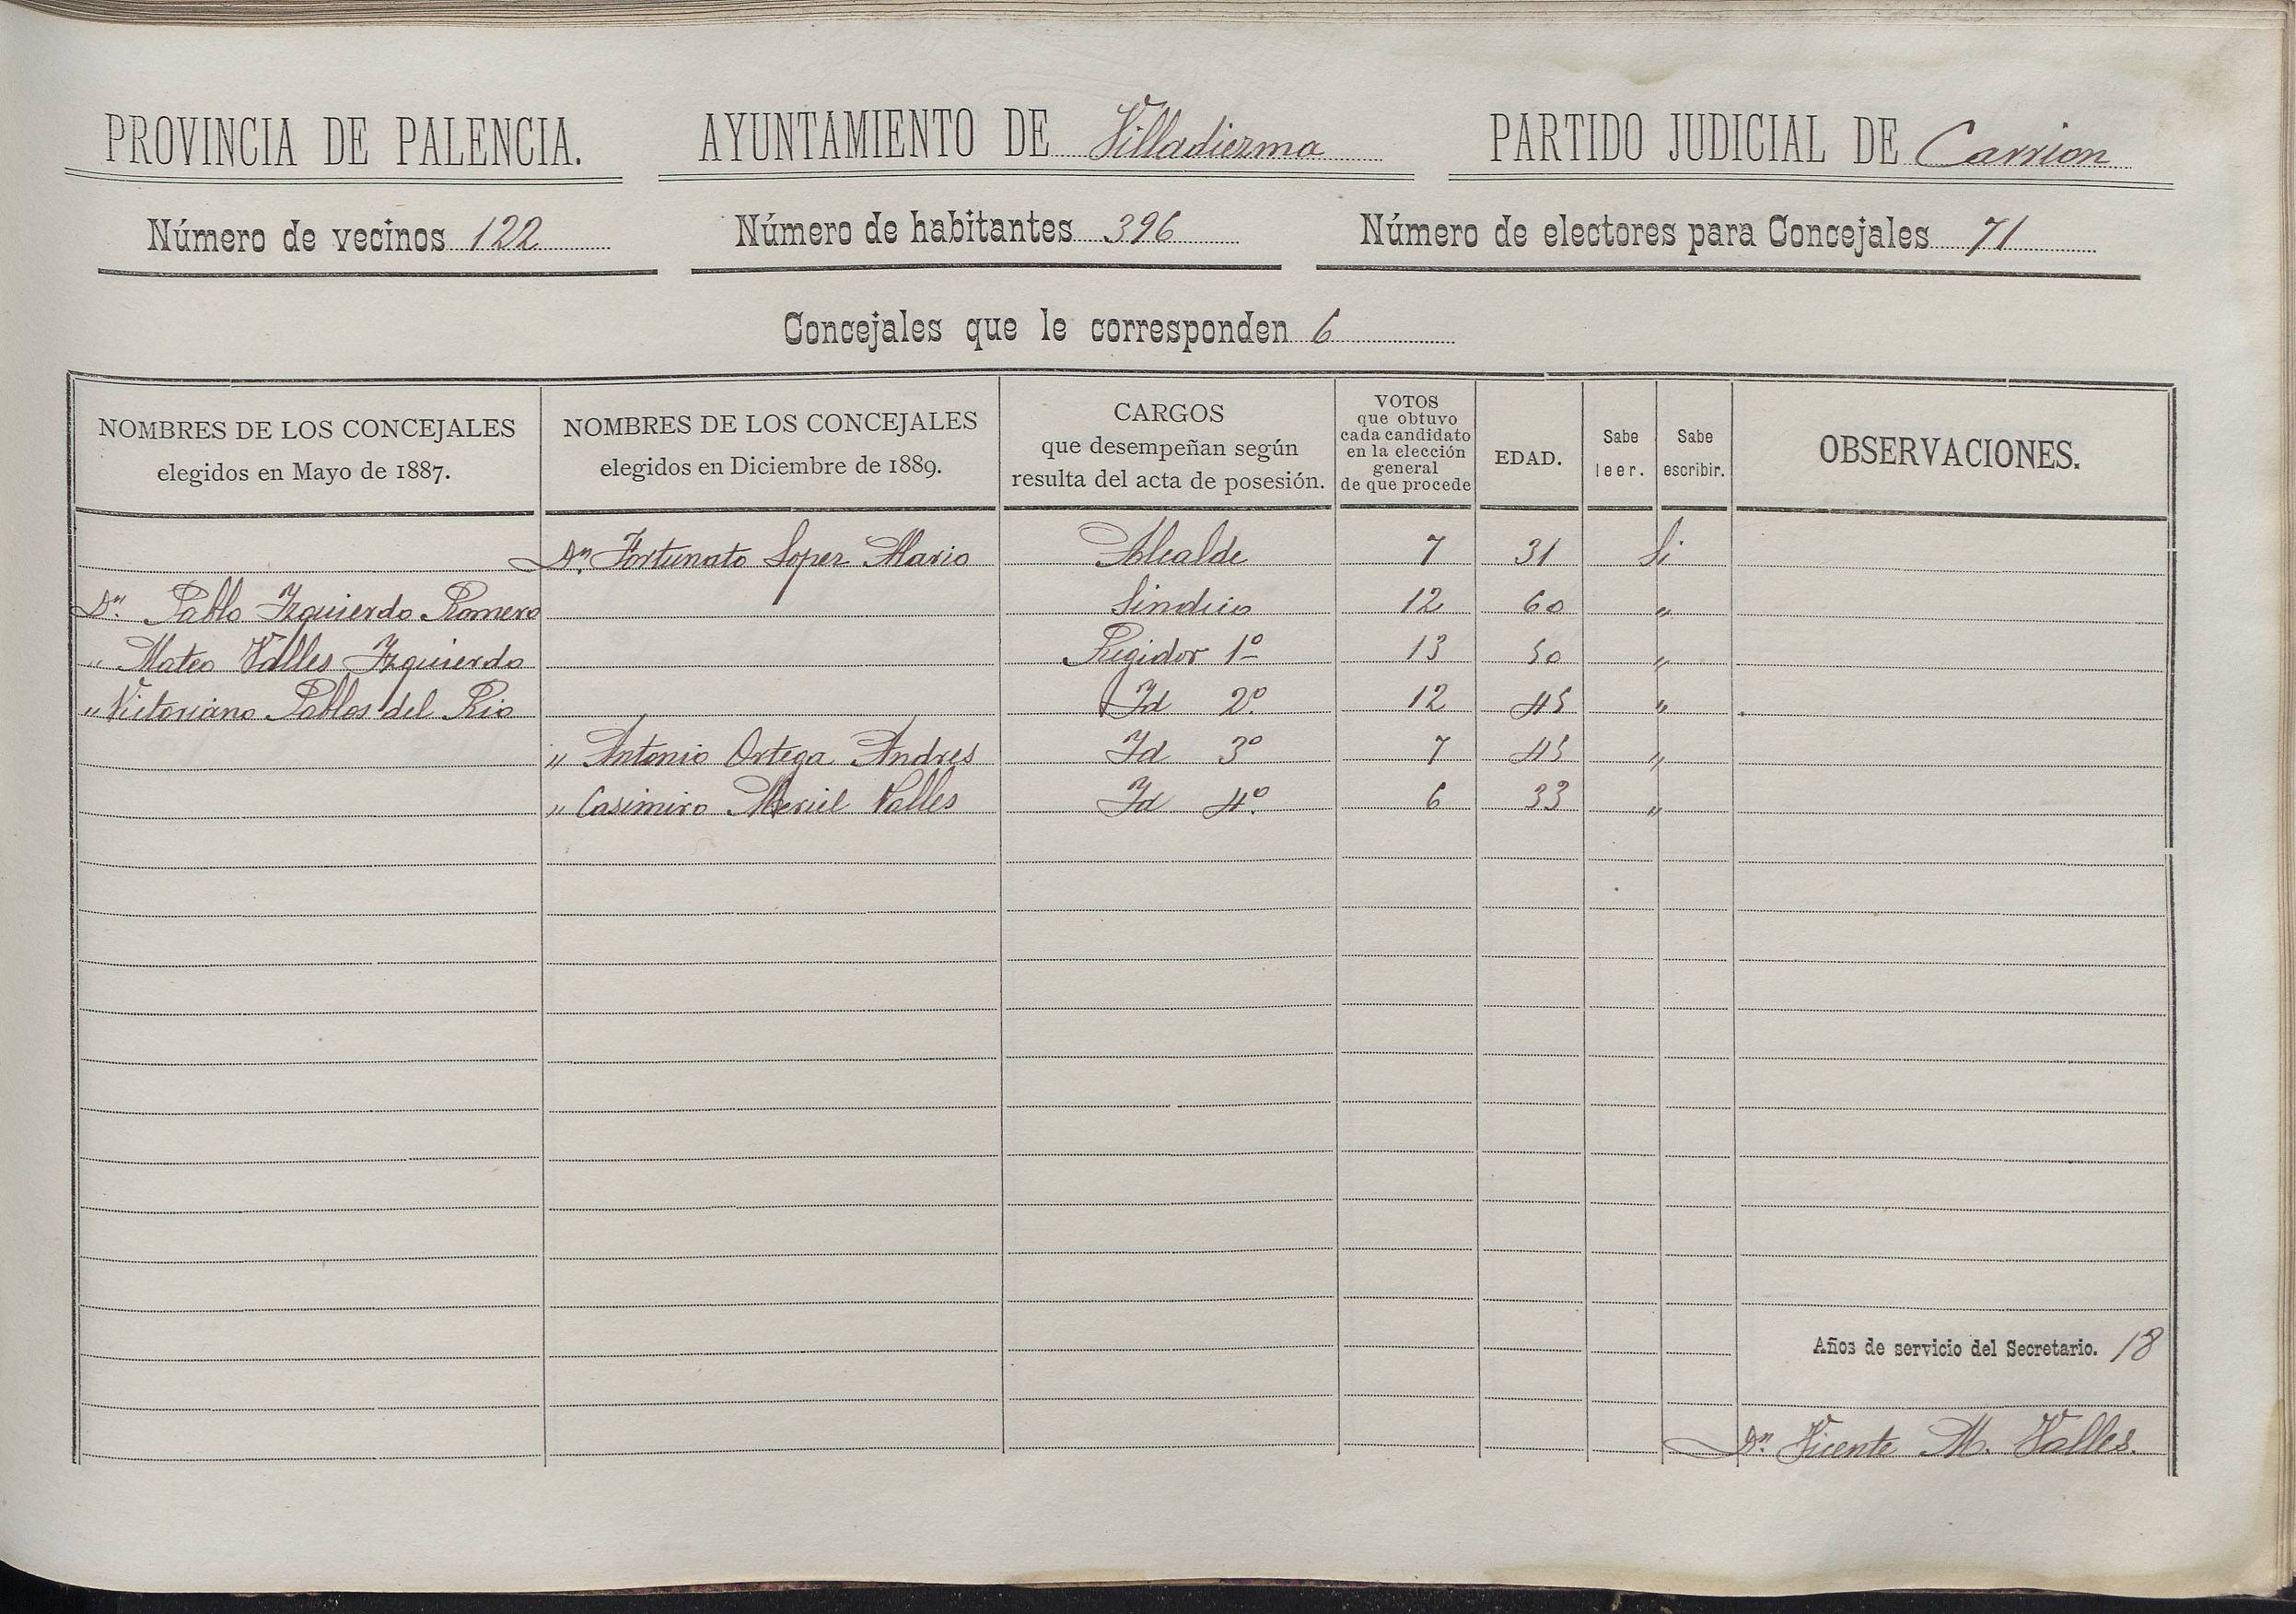 PROVINCIA DE PALENCIA. AYUNTAMIENTO DE Villadiezma PARTIDO JUDICIAL DE Carrion
Número de vecinos 122 Número de habitantes 396 Número de electores para Concejales 71
Concejales que le corresponden 6
NOMBRES DE LOS CONCEJALES elegidos en Mayo de 1887. NOMBRES DE LOS CONCEJALES elegidos en Diciembre de 1889. CARGOS que desempeñan según resulta del acta de posesión. VOTOS que obtuvo cada candidato en la elección general de que procede EDAD. Sabe leer. Sabe escribir. OBSERVACIONES.
Dn. Fortunato Lopez Mario Alcalde 7 31 Si
Dn. Pablo Izquierdo Romero Sindico 12 60 "
" Mateo Valles Izquierdo Regidor 1º 13 50 "
" Victoriano Pablos del Rio Id 2º 12 45 "
" Antonio Ortega Andres Id 3º 7 45 "
" Casimiro Meriel Valles Id 4º 6 33 "
Años de servicio del Secretario. 18
Dn. Vicente M. Valles.